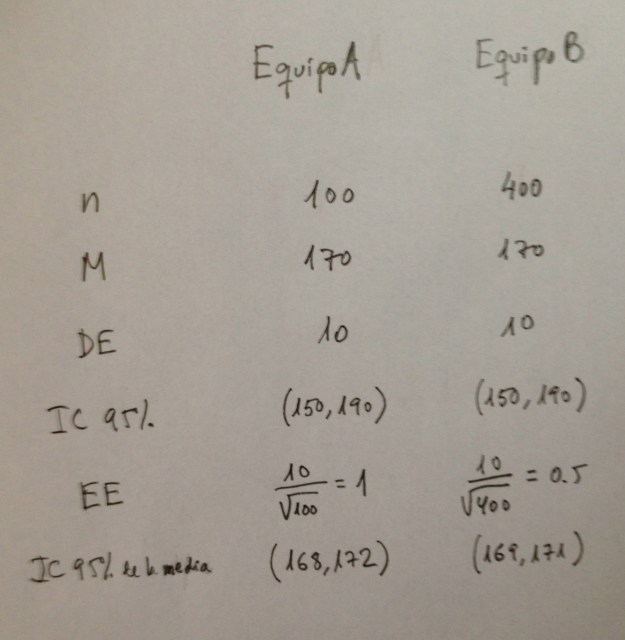 Equipo A Equipo B
n 100 400
M 170 170
DE 10 10
IC 95% (150,190) (150,190)
EE 10/√100 = 1 10/√400 = 0.5
IC 95% de la media (168,172) (169,171)